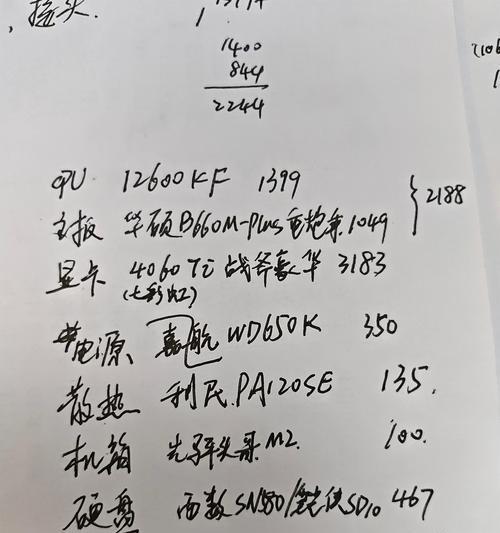 接头.
1400
844
2244
CPU 12600KF 1399
主板 华硕B660M-Plus重炮手1049
2188
显卡 4060Ti 战斧豪华 3183
(七彩虹)
电源 嘉航WD650K 350
散热 利民PA120SE 135.
机箱 先马平头哥M2. 100.
硬盘 西数SN580/ SD10 467